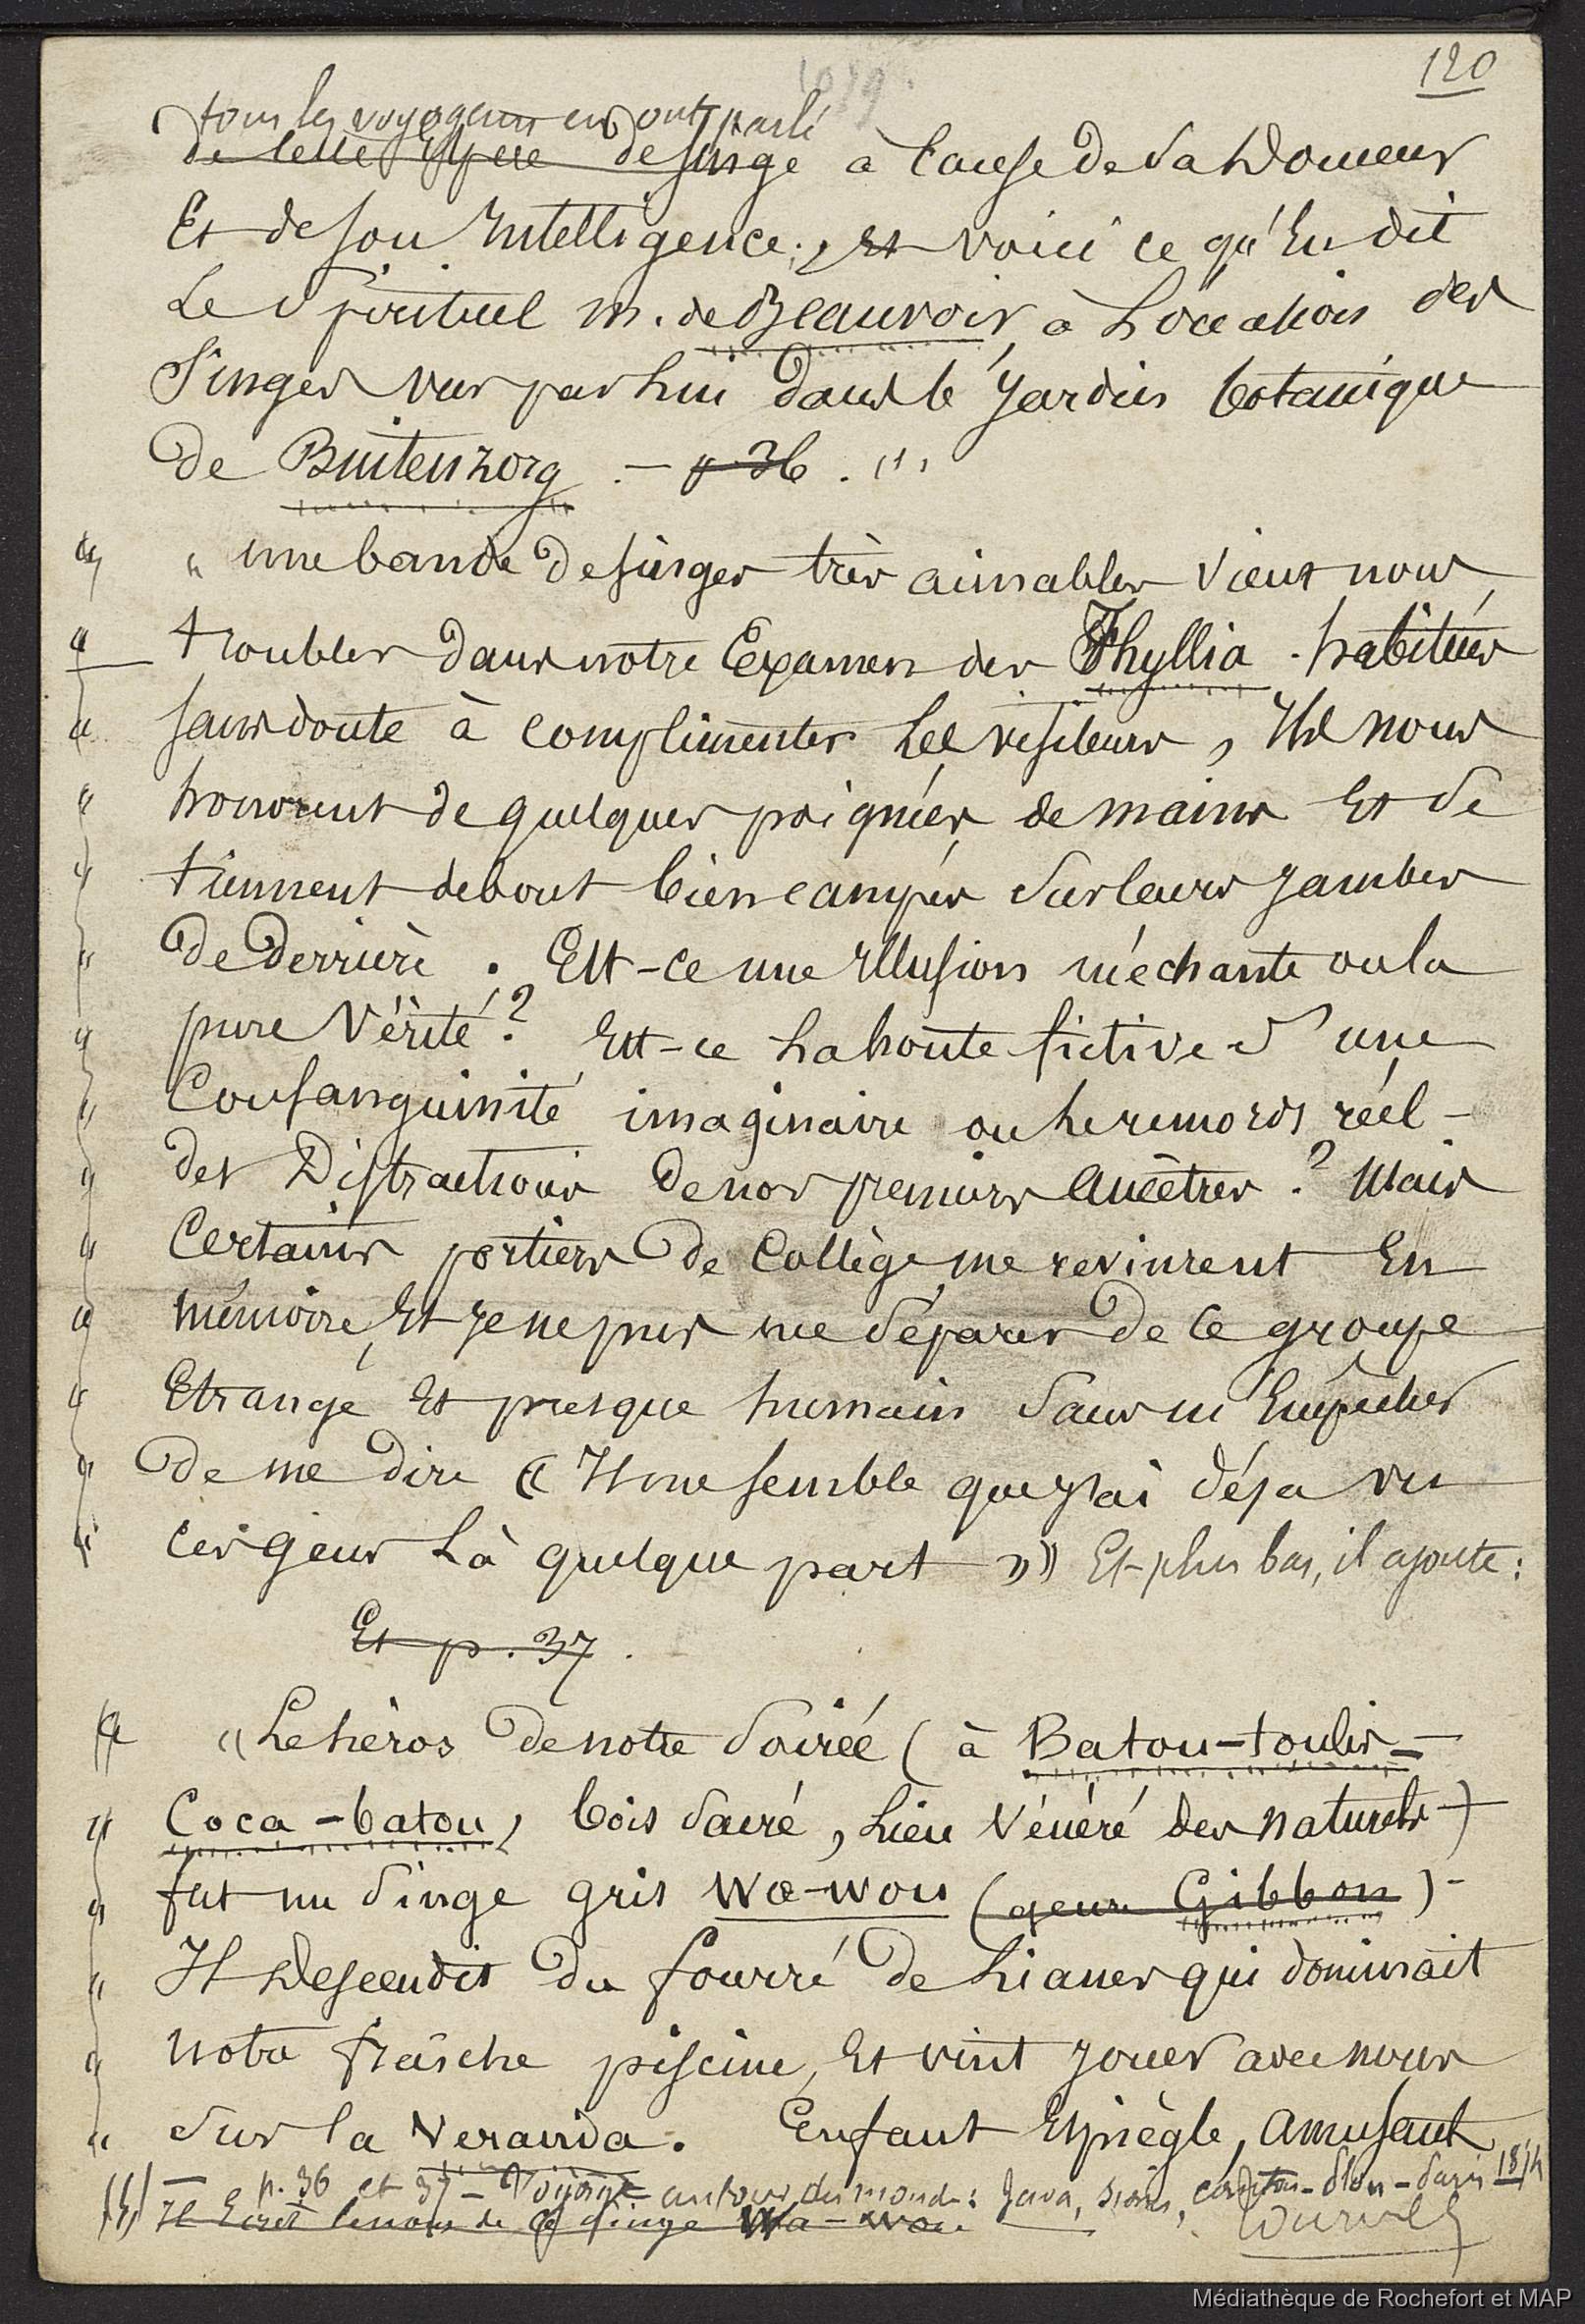 120
1039.
tous les voyageurs en ont parlé
de cette Espece de singe à Cause de sa Douceur
Et de son Intelligence; et voici ce qu'En dit
Le Spirituel M. de Beauvoir, à L'occasion des
Singes vus par Lui dans le Jardin botanique
de Buitenzorg. - p 36. (1)
" une bande de singes très aimables vient nous
troubler dans notre Examen des Phyllia. habitués
sans doute à complimenter Les visiteurs, Ils nous
honorent de quelques poignées de mains Et se
tiennent debout bien campés sur leurs jambes
De Derrière. Est-ce une Illusion méchante ou la
pure Vérité? Est-ce La honte fictive d'une
Consanguinité imaginaire ou Le remords réel
des Distractions de nos premiers Ancêtres? Mais
Certains portiers de Collège me revinrent En
mémoire, Et je ne pus me séparer de ce groupe
Etrange Et presque humain sans m'Empêcher
De me dire « Il me semble que j'ai déja vu
ces gens Là quelque part »» Et plus bas, il ajoute:
Et p. 37.
" Le héros de notre Soirée (à Batou-toulis-
Coca-batou, bois sacré, Lieu Vénéré des naturels)
fut un singe gris Wa-wou (genre Gibbon)-
Il Descendit du fourré de Lianes qui dominait
notre fraîche piscine, Et vint jouer avec nous
sur la Veranda. Enfant Espiègle, amusant
(1) — p. 36 et 37 — Voyage autour du monde: Java, Siam, Canton - Plon - Paris 1874
Il Ecrit le nom de ce singe Wa-wou